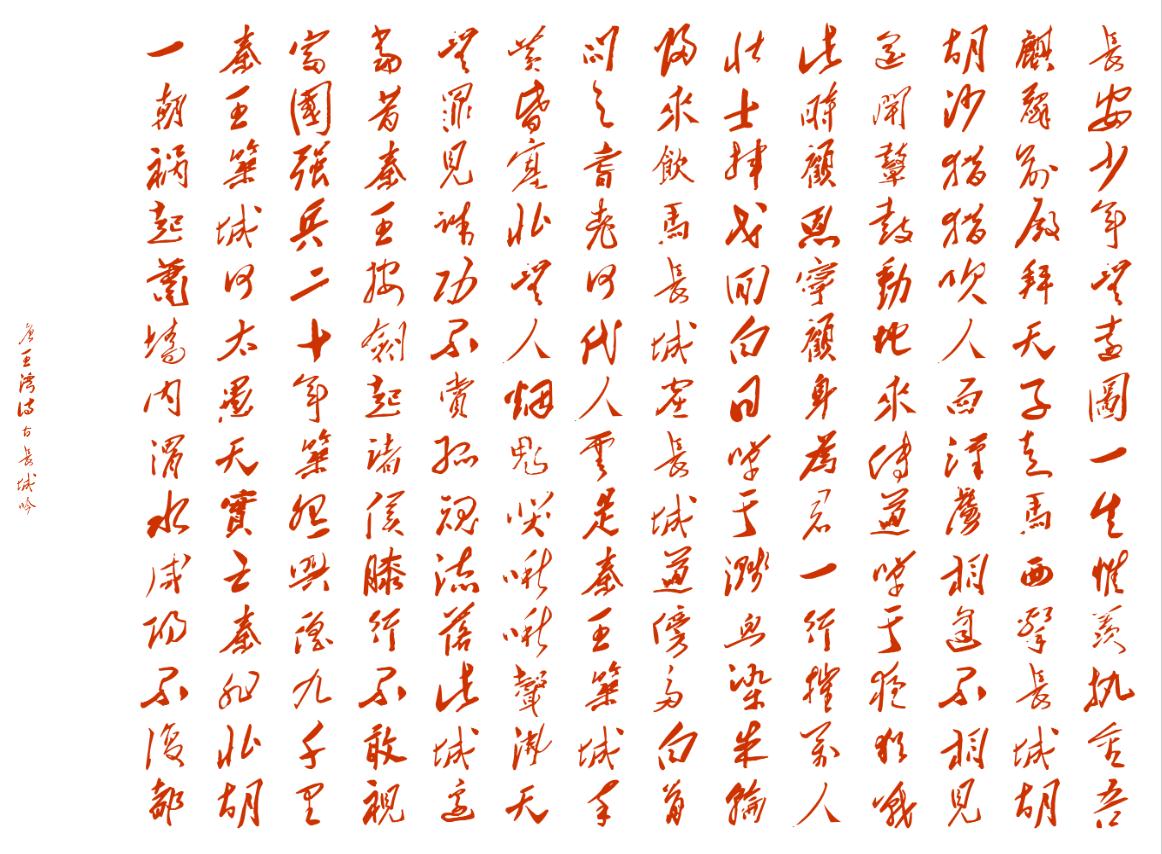 長安少年無遠圖一生惟羨執金吾
麒麟前殿拜天子走馬西擊長城胡
胡沙獵獵吹人面漢虜相逢不相見
遙聞鼙鼓動地來傳道單于夜猶戰
此時顧恩寧顧身為君一行摧萬人
壯士揮戈回白日單于濺血染朱輪
歸來飲馬長城窟長城道傍多白骨
問之耆老何代人雲是秦王築城卒
黃昏塞北無人烟鬼哭啾啾聲沸天
無罪見誅功不賞孤魂流落此城邊
當昔秦王按劍起諸侯膝行不敢視
富國强兵二十年築怨興徭九千里
秦王築城何太愚天實亡秦非北胡
一朝禍起蕭墻內渭水咸陽不復都
唐王灣詩古長城吟